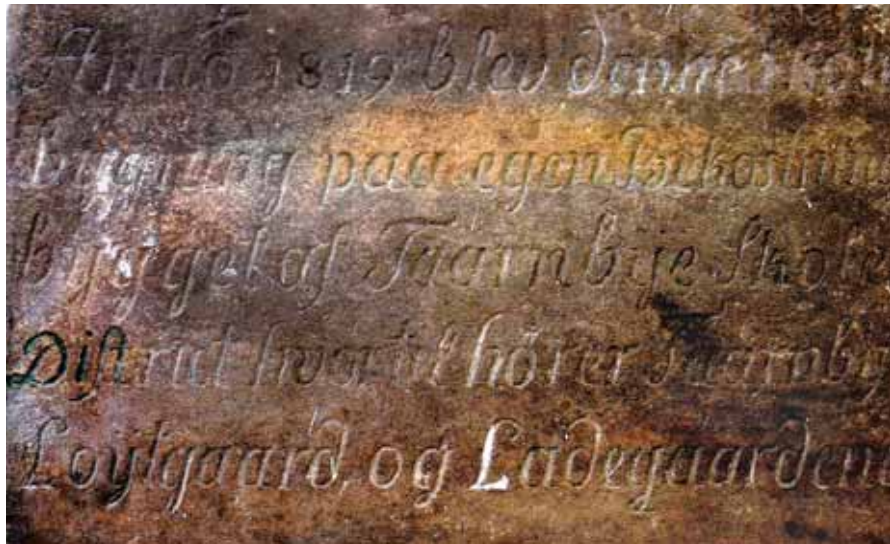 Anno 1819 blev denne Skole
bygning paa egen Bekostnin
bygget af Taarnbye Skole
District hvor til hører Taarnby
Løylgaard, og Ladegaardene